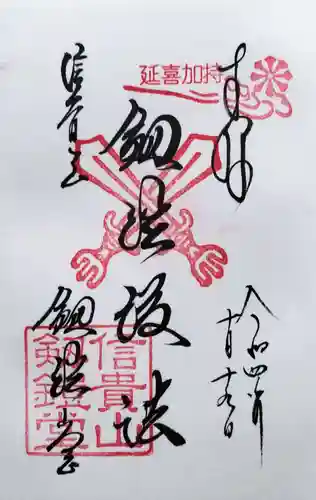 奉拝
延喜加持
令和四年
十月十九日
剱鎧護法
信貴山
剱鎧堂
信貴山
剱鎧堂